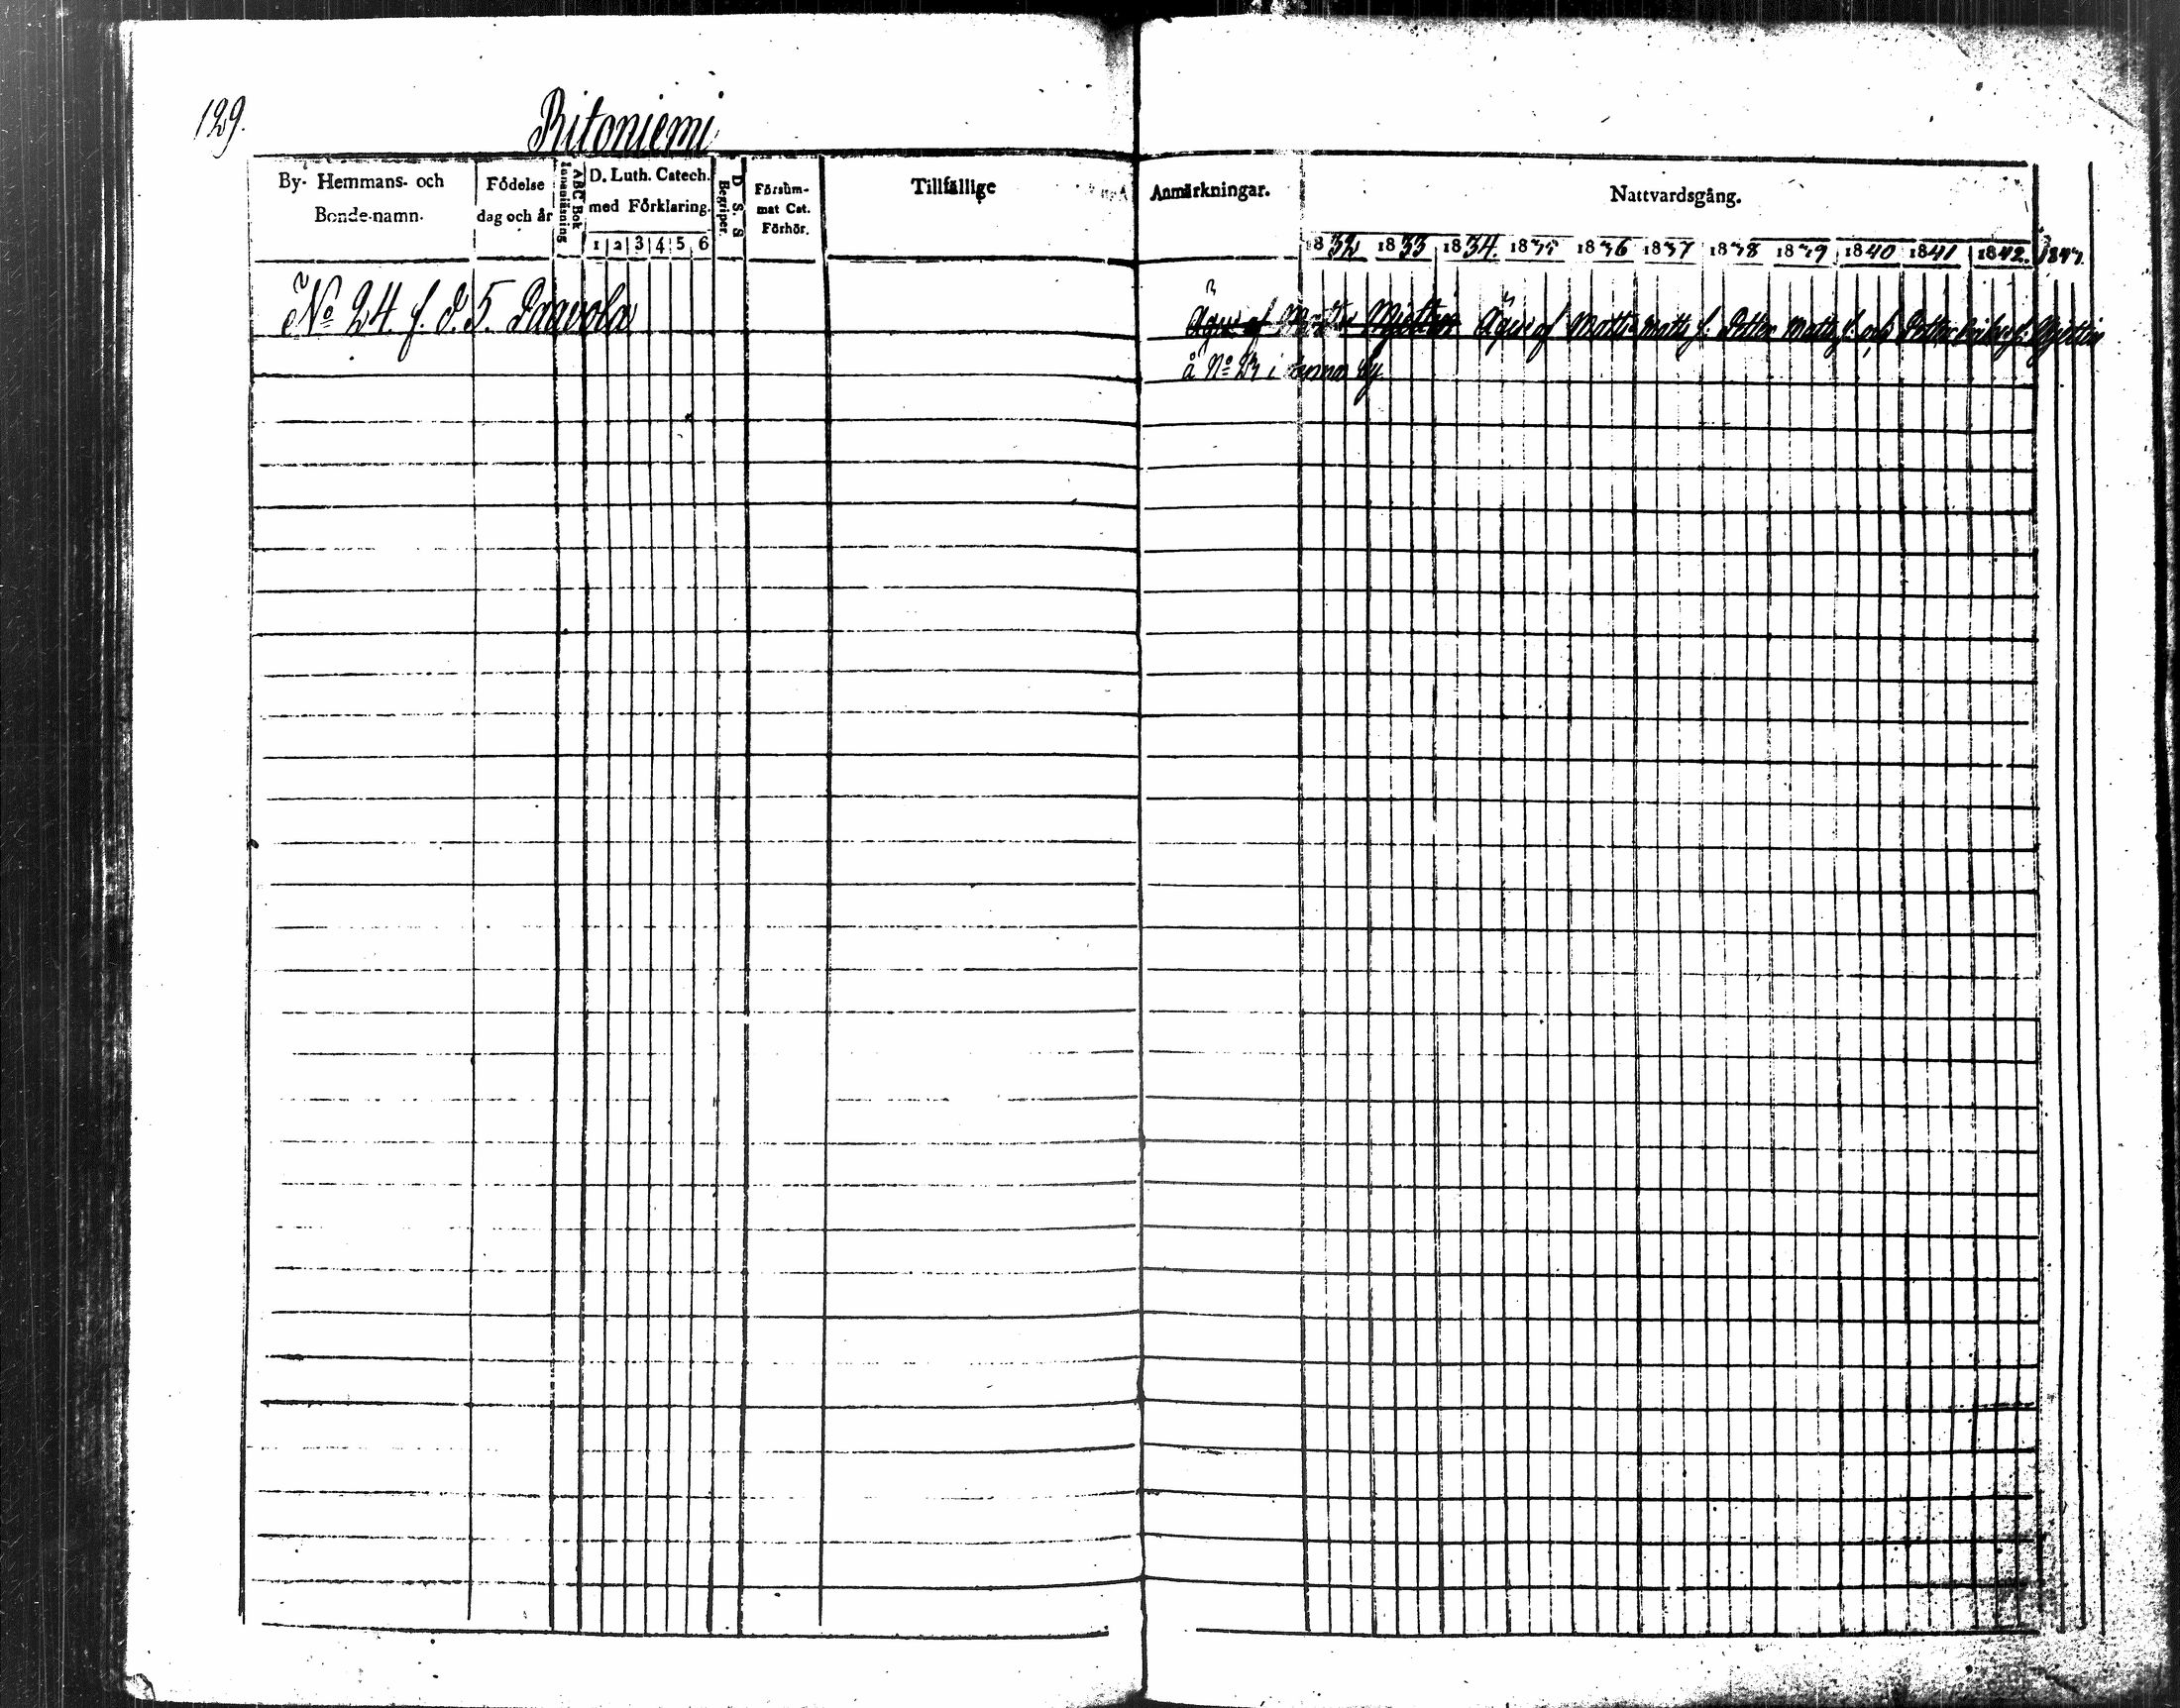 129.
Ritoniemi
By- Hemmans- och Bonde-namn.
Födelse dag och år
ABC Bok Innanläsning
D. Luth. Catech. med Förklaring.
1 2 3 4 5 6
D. S. S Begriper.
Försum-mat Cat. Förhör.
Tillfällige Anmärkningar.
Nattvardsgång.
1832 1833 1834. 1835 1836 1837 1838 1839 1840 1841 1842. 1843.
No 24 f. d. 5. Paavola
Äges af Äges af Matts Matts s. Petter Matts s. och Petter
å No i denna by